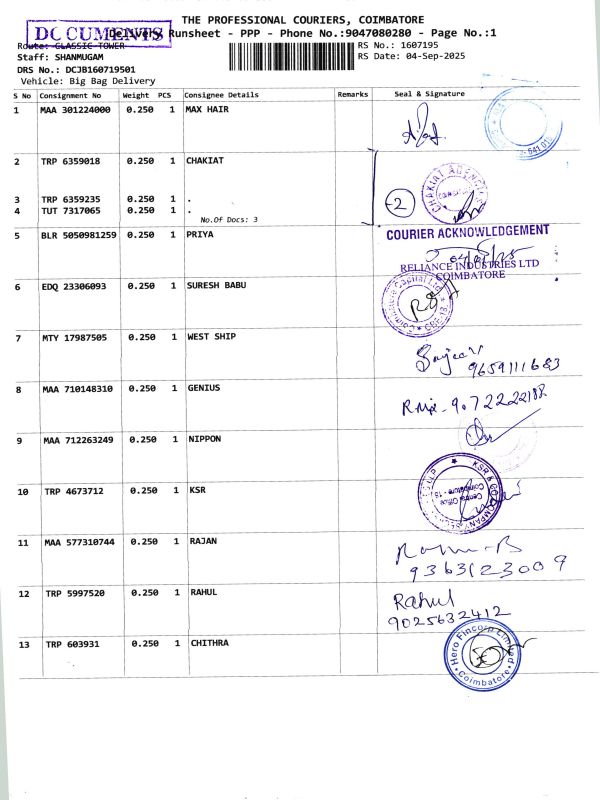 THE PROFESSIONAL COURIERS, COIMBATORE
DOCUMENTS
Delivery Runsheet - PPP - Phone No.:9047080280 - Page No.:1
Route: CLASSIC TOWER
RS No.: 1607195
Staff: SHANMUGAM
RS Date: 04-Sep-2025
DRS No.: DCJB160719501
Vehicle: Big Bag Delivery
S No Consignment No Weight PCS Consignee Details Remarks Seal & Signature
1 MAA 301224000 0.250 1 MAX HAIR
2 TRP 6359018 0.250 1 CHAKIAT
CHAKIAT AGENCIES
3 TRP 6359235 0.250 1 .
-2
4 TUT 7317065 0.250 1 .
No.Of Docs: 3
5 BLR 5050981259 0.250 1 PRIYA
COURIER ACKNOWLEDGEMENT
RELIANCE INDUSTRIES LTD
COIMBATORE
6 EDQ 23306093 0.250 1 SURESH BABU
Capital Ltd
CBE-18
7 MTY 17987505 0.250 1 WEST SHIP
9659111683
8 MAA 710148310 0.250 1 GENIUS
9072222188
9 MAA 712263249 0.250 1 NIPPON
10 TRP 4673712 0.250 1 KSR
KSR & CO COMPANY SE LLP
Central Office
Coimbatore - 18
11 MAA 577310744 0.250 1 RAJAN
9363123009
12 TRP 5997520 0.250 1 RAHUL
Rahul
9025632412
13 TRP 603931 0.250 1 CHITHRA
Hero Fincorp Limited
Coimbatore